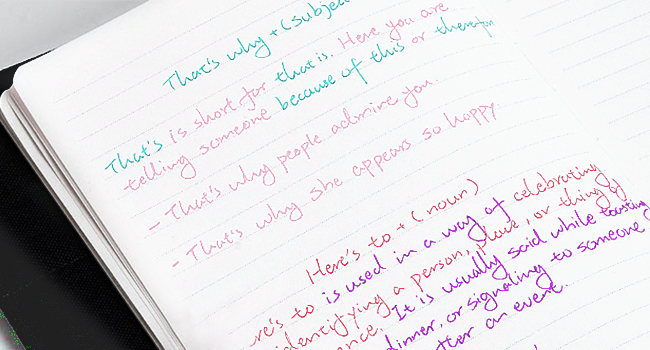 That's why + (subjec
That's is short for that is. Here you are
telling someone because of this or therefor
- That's why people admire you.
- That's why she appears so happy
Here's to + (noun)
re's to is used in a way of celebrating
identifying a person, place, or thing
ence. It is usually said while toasting
dinner, or signaling to someone
after an event.